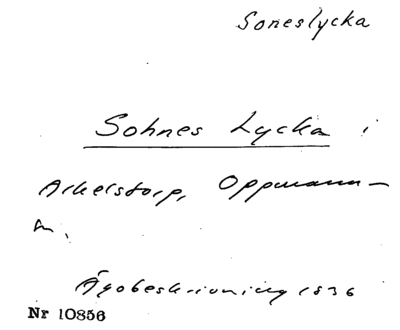 Soneslycka
Sohnes Lycka i
Arkelstorp, Oppmanna-
sn.
Ägobeskrivning 1836
Nr 10856